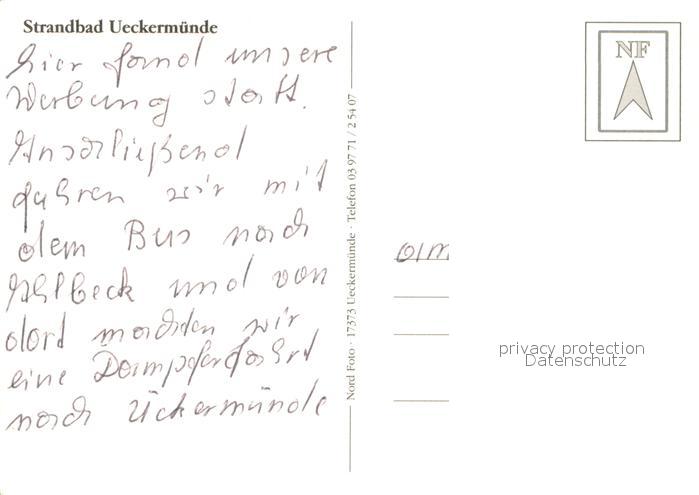 Strandbad Ueckermünde
hier fand unsere
Werbung statt.
Anschließend
fuhren wir mit
dem Bus nach
Ahlbeck und von
dort machten wir
eine Dampferfahrt
nach Ückermünde
Nord Foto · 17373 Ueckermünde · Telefon 03 97 71 / 2 54 07
NF
am
privacy protection
Datenschutz